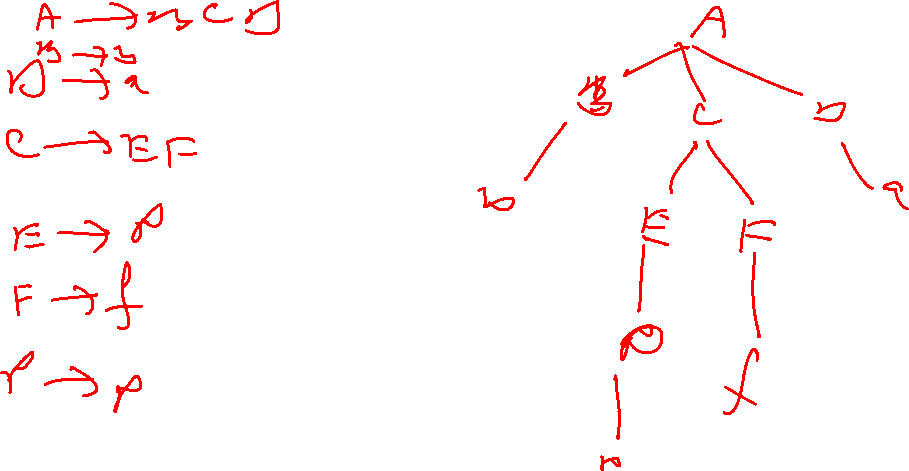 A → B C D
B → b
D → a
C → E F
E → P
F → f
P → p
A
B C D
b E F a
P f
p